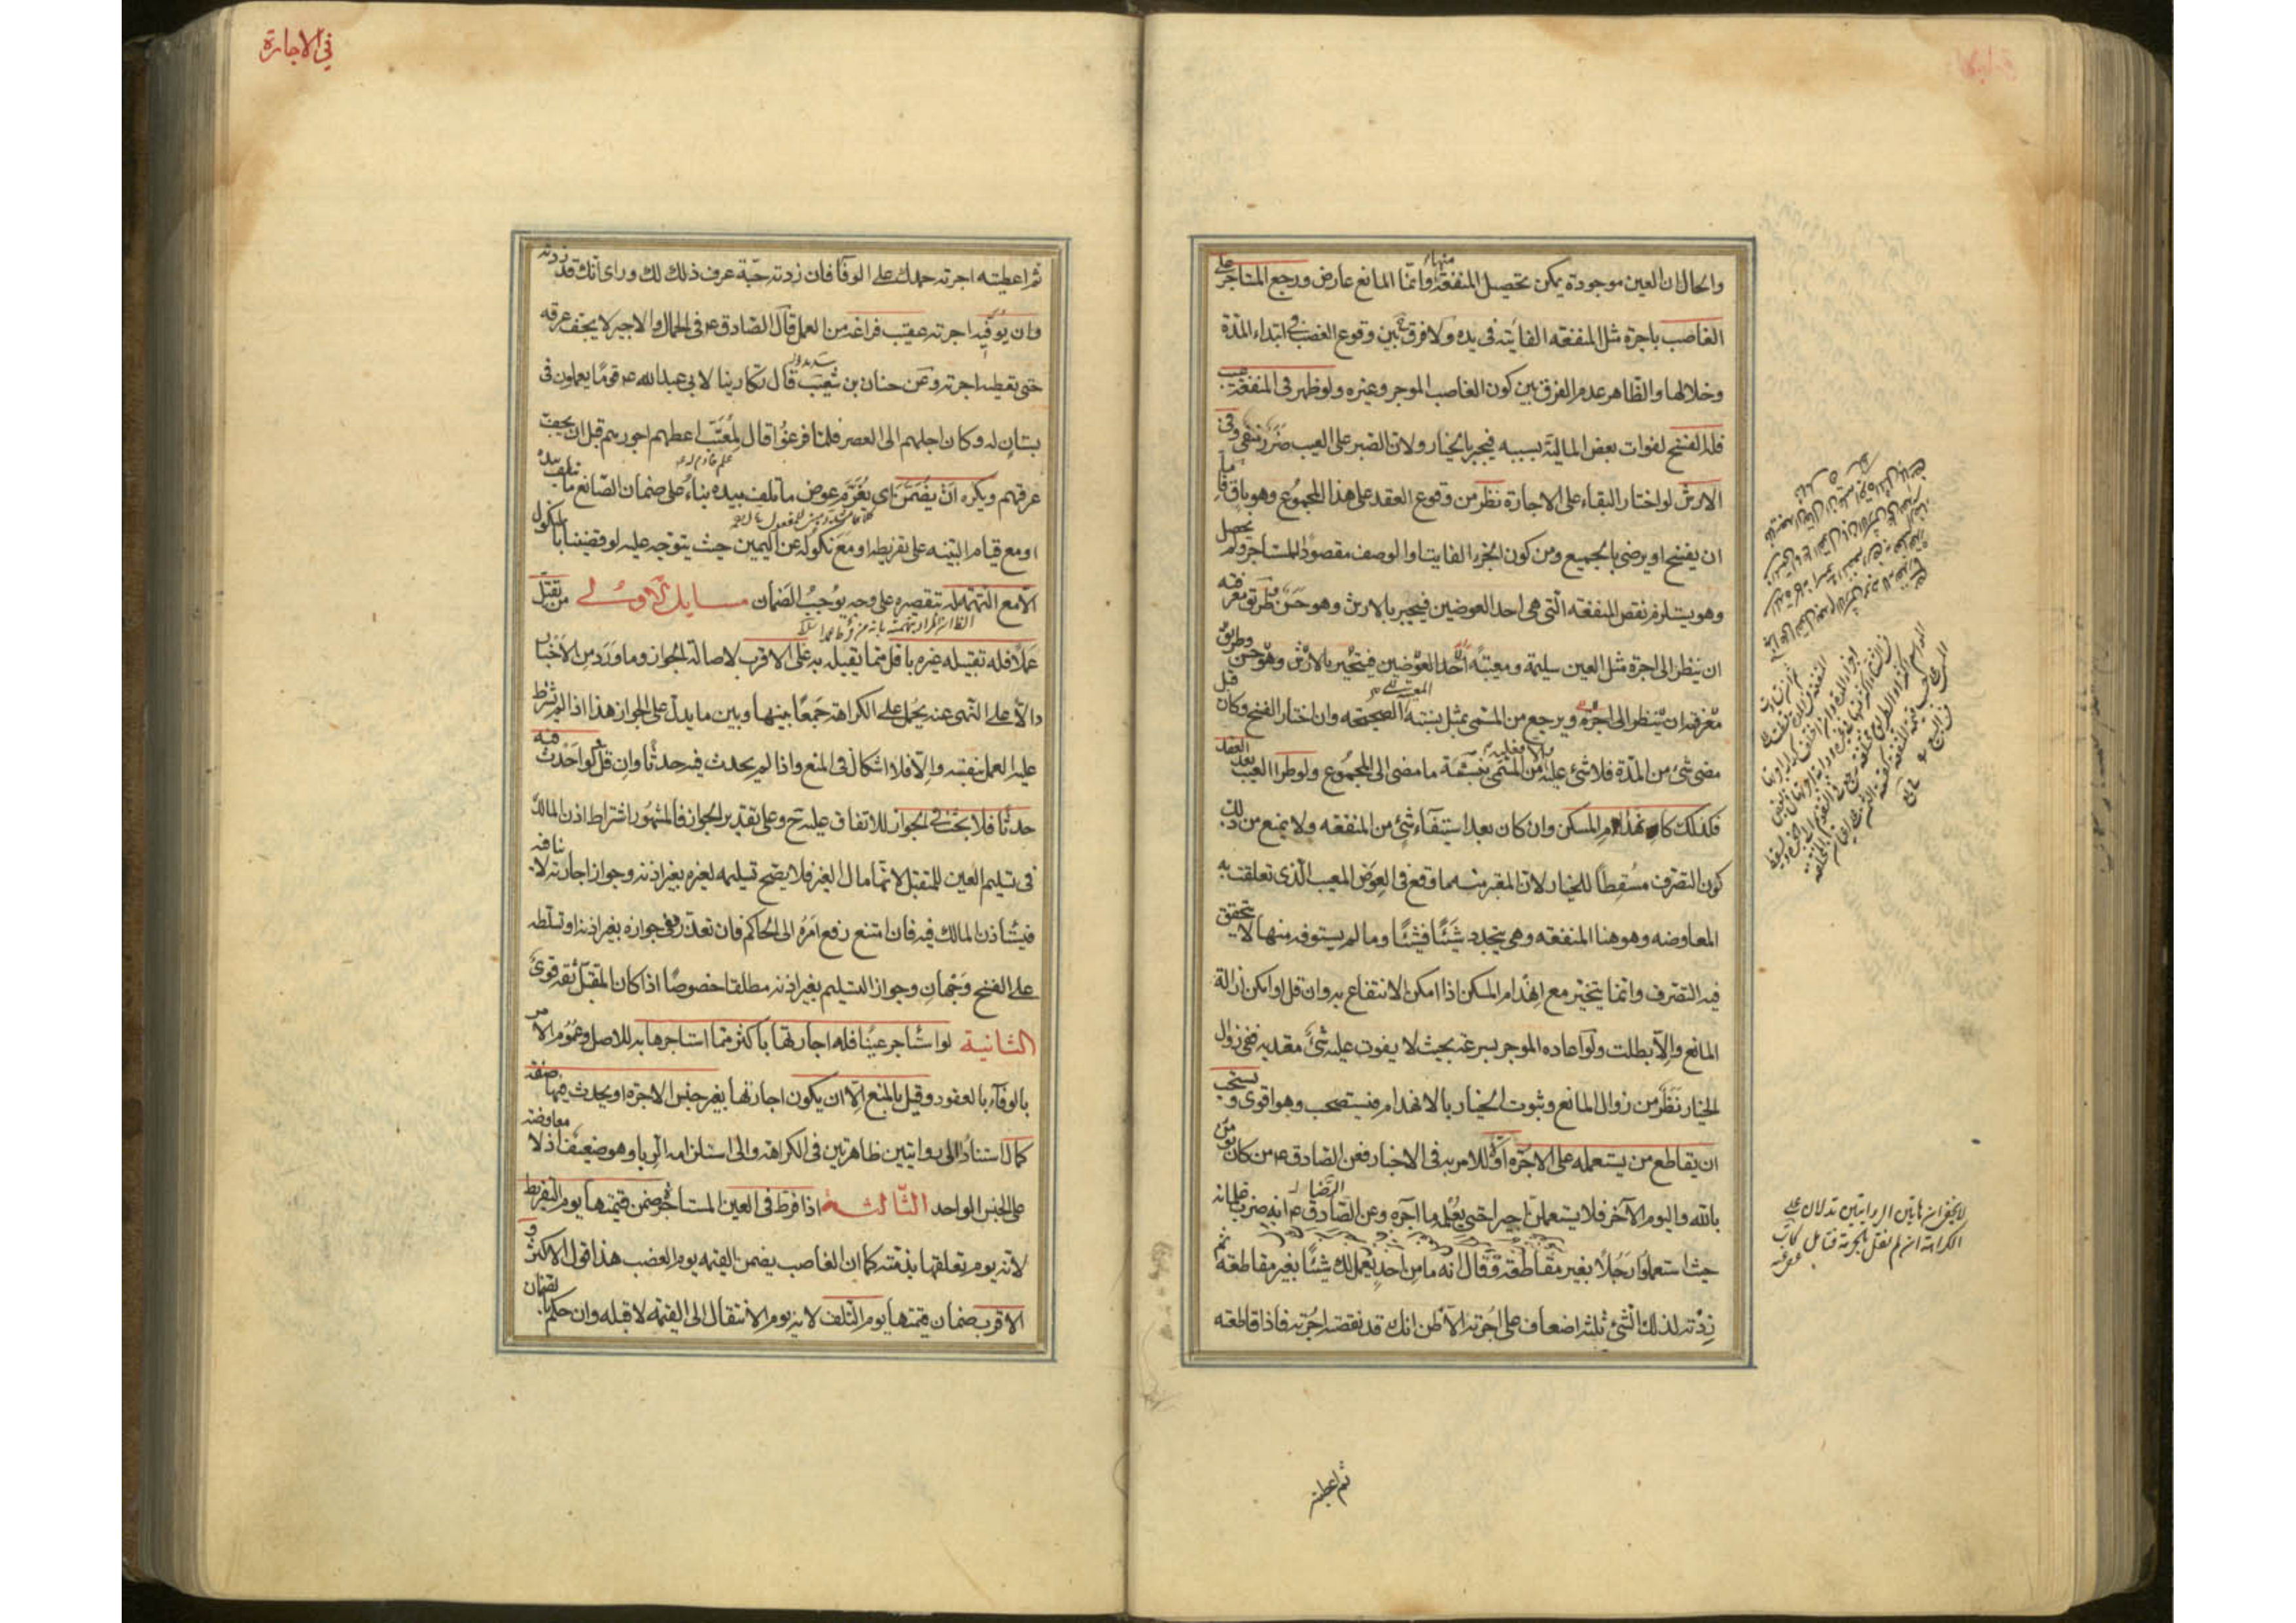 والحال ان العين موجودة يمكن تحصيل المنفعة منها وانما المانع عارض ورجع المستاجر على
الغاصب باجرة مثل المنفعه الفايته فى يده ولا فرق ح بين وقوع الغصب فى ابتداء المدة
وخلالها والظاهر عدم الفرق بين كون الغاصب الموجر وغيره ولو ظهر فى المنفعة عيب
فله الفسخ لفوات بعض المالية بسببه فيجبر بالخيار ولان الصبر على العيب ضرر منفى وفى
الارش لو اختار البقاء على الاجارة نظر من وقوع العقد على هذا المجموع وهو باق فاما
ان يفسخ او يرضى بالجميع ومن كون الجزء الفايت او الوصف مقصودا للمستاجر ولم يحصل
وهو يستلزم نقص المنفعه التى هى احد العوضين فيجبر بالارش وهو حسن وطريق معرفته
ان ينظر الى اجرة مثل العين سليمة ومعيبة احد العوضين فيجبر بالارش وهو حسن وطريق
معرفته ان ينظر الى اجرة ويرجع من المسمى بمثل نسبته المعيب الى الصحيحه وان اختار الفسخ وكان قبل
مضى شئ من المدة فلا شئ عليه والا فعليه من المسمى بنسبة ما مضى الى المجموع ولو طرا العيب بعد العقد
فكذلك كانهدام المسكن وان كان بعد استيفاء شئ من المنفعه ولا يمنع من ذلك
كون التصرف مسقطا للخيار لان المعتبر منه ما وقع فى العوض المعيب الذى تعلقت به
المعاوضه وهو هنا المنفعه وهى يتجدد شيئا فشيئا وما لم يستوفه منها لا يتحقق
فيه التصرف وانما يتخير مع انهدام المسكن اذا امكن الانتفاع به وان قل او امكن ازالة
المانع والا بطلت ولو اعاده الموجر بسرعة بحيث لا يفوت عليه شئ معتد به ففى زوال
الخيار نظر من زوال المانع وثبوت الخيار بالانهدام فيستصحب وهو اقوى ويستحب
ان يقاطع من يستعمله على الاجرة اولا للامر به فى الاخبار فعن الصادق ع من كان يومن
بالله واليوم الآخر فلا يستعملن اجيرا حتى يعلمه ما اجره وعن الرضا ع انه ضرب غلمانه
حيث استعملوا رجلا بغير مقاطعة وقال انه ما من احد يعمل لك شيئا بغير مقاطعة ثم
زدته لذلك الشئ ثلثة اضعاف على اجرته الا ظن انك قد نقصته اجرته فاذا قاطعته
ثم اعطيته
لا يخفى ان هاتين الروايتين تدلان على
الكراهة ان لم نقل بالحرمة فتامل
فى الاجارة
ثم اعطيته اجرته حمدك على الوفا فان زدته حبة عرف ذلك لك وراى انك قد زدته
وان يوفيه اجرته عقيب فراغه من العمل قال الصادق ع فى الحمال والاجير لا يجف عرقه
حتى تعطيه اجرته وعن حنان بن شعيب قال تكارينا لابى عبدالله ع قوما يعملون فى
بستان له وكان اجلهم الى العصر فلما فرغوا قال لمعتب اعطهم اجورهم قبل ان يجف
عرقهم ويكره ان يضمن اى يغرم عوض ما تلف بيده بناء على ضمان الصانع ما تلف بيده
او مع قيام البينه على تفريطه او مع نكوله عن اليمين حيث يتوجه عليه لو قضينا بالنكول
الا مع التهمة له بتقصيره على وجه يوجب الضمان مسايل الاولى من تقبل
عملا فله تقبيله غيره باقل مما يقبله به على الاقرب لاصالة الجواز وما ورد من الاخبار
دالا على النهى عنه يحمل على الكراهة جمعا بينها وبين ما يدل على الجواز هذا اذا لم يشترط
عليه العمل بنفسه والا فلا اشكال فى المنع واذا لم يحدث فيه حدثا وان قل فلو احدث فيه
حدثا فلا بحث فى الجواز للاتفاق عليه ح وعلى تقدير الجواز فالمشهور اشتراط اذن المالك
فى تسليم العين للمتقبل لانها مال الغير فلا يصح تسليمه لغيره بغير اذنه وجواز اجارته لا ينافيه
فيستاذن المالك فيه فان امتنع رفع امره الى الحاكم فان تعذر ففى جوازه بغير اذنه او تسلطه
على الفسخ وجهان وجواز التسليم بغير اذنه مطلقا خصوصا اذا كان المتقبل ثقة قوى
الثانية لو استاجر عينا فله اجارتها باكثر مما استاجرها به للاصل وعموم الامر
بالوفاء بالعقود وقيل بالمنع الا ان يكون اجارتها بغير جنس الاجرة او يحدث فيها صفة
كمال استنادا الى روايتين ظاهرتين فى الكراهة والى استلزامه الربا وهو ضعيف اذ لا معاوضة
على الجنس الواحد الثالثة اذا فرط فى العين المستاجرة ضمن قيمتها يوم التفريط
لانه يوم تعلقها بذمته كما ان الغاصب يضمن القيمه يوم الغصب هذا قول الاكثر و
الاقرب ضمان قيمتها يوم التلف لانه يوم الانتقال الى القيمة لا قبله وان حكم بالضمان